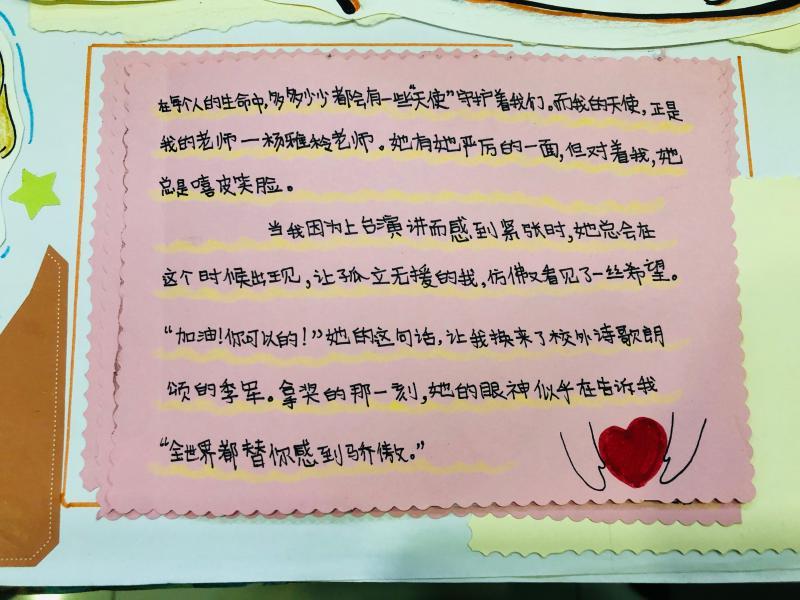 在每个人的生命中,多多少少都会有一些“天使”守护着我们。而我的天使,正是
我的老师—杨雅羚老师。她有她严厉的一面,但对着我,她
总是嘻皮笑脸。
当我因为上台演讲而感到紧张时,她总会在
这个时候出现,让孤立无援的我,仿佛又看见了一丝希望。
“加油!你可以的!”她的这句话,让我换来了校外诗歌朗
颂的季军。拿奖的那一刻,她的眼神似乎在告诉我
“全世界都替你感到骄傲。”